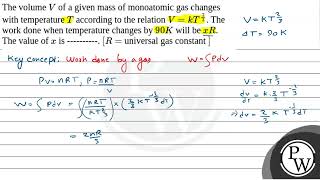 The volume V of a given mass of monoatomic gas changes
with temperature T according to the relation V = kT^{2/3}. The
work done when temperature changes by 90K will be xR.
The value of x is ----------. [R = universal gas constant]
V = KT^{2/3}
ΔT = 90K
Key concept: Work done by a gas W = ∫Pdv
PV = nRT, P = nRT/V
W = ∫Pdv = ∫(nRT/KT^{2/3}) × (2/3 K T^{-1/3} dT)
= 2nR/3
V = KT^{2/3}
dv/dT = K·2/3 T^{-1/3}
⇒ dv = 2/3 K T^{-1/3} dT
PW